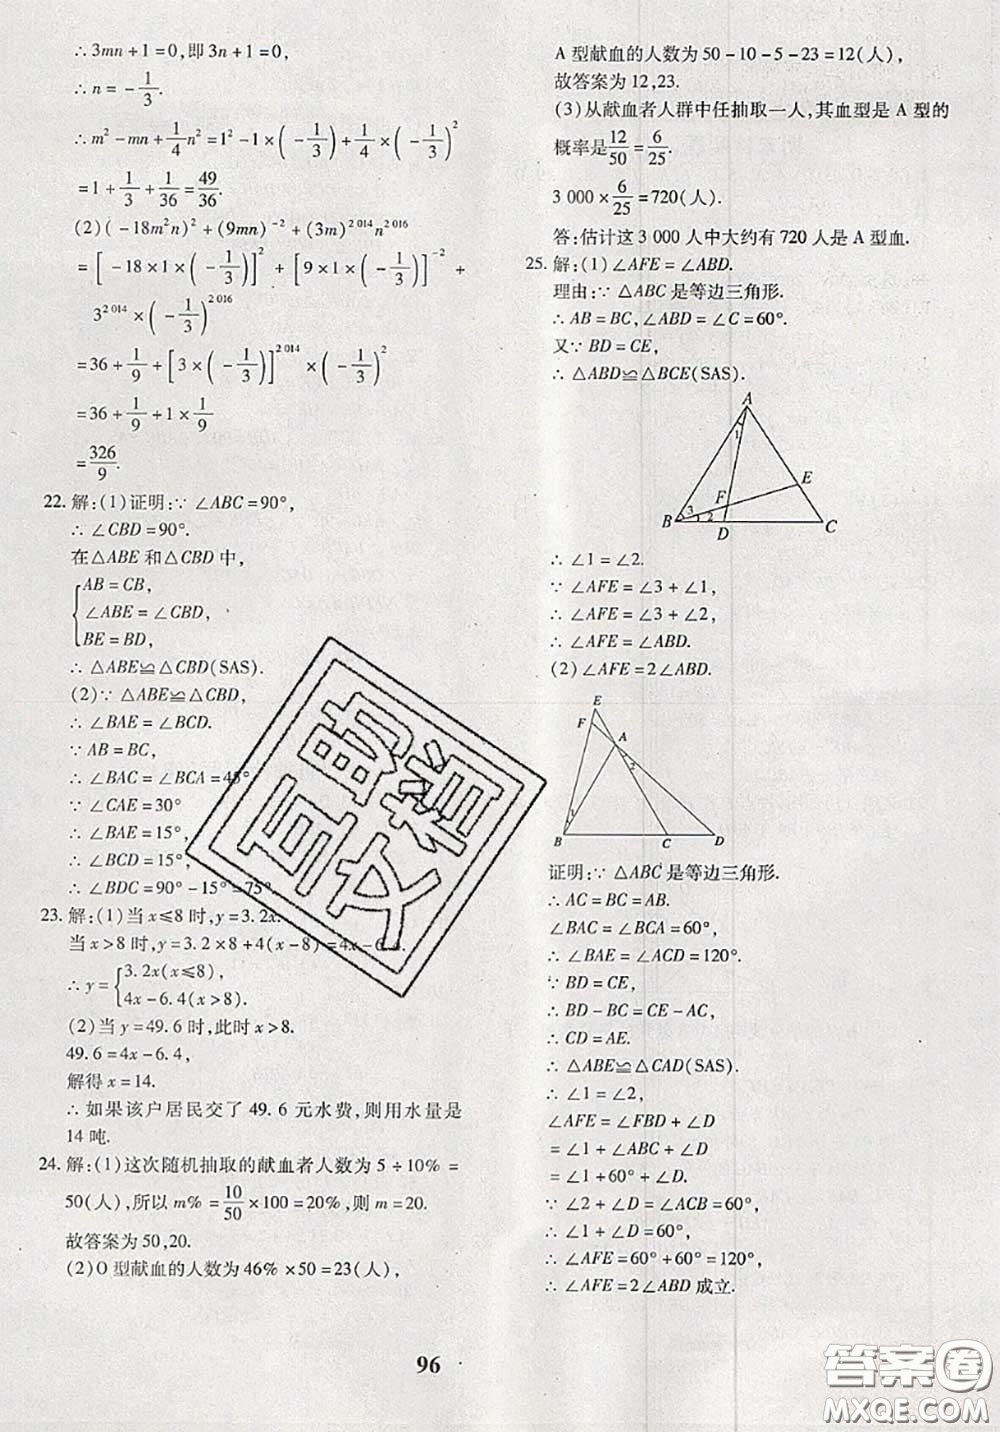 ∴ 3mn + 1 = 0, 即 3n + 1 = 0,
∴ n = -1/3.
∴ m² - mn + 1/4 n² = 1² - 1 × (-1/3) + 1/4 × (-1/3)²
= 1 + 1/3 + 1/36 = 49/36.
(2) (-18m²n)² + (9mn)⁻² + (3m)²⁰¹⁴n²⁰¹⁶
= [-18 × 1 × (-1/3)]² + [9 × 1 × (-1/3)]⁻² +
3²⁰¹⁴ × (-1/3)²⁰¹⁶
= 36 + 1/9 + [3 × (-1/3)]²⁰¹⁴ × (-1/3)²
= 36 + 1/9 + 1 × 1/9
= 326/9.
22. 解:(1)证明:∵ ∠ABC = 90°,
∴ ∠CBD = 90°.
在△ABE 和△CBD 中,
{ AB = CB,
∠ABE = ∠CBD,
BE = BD,
∴ △ABE≌△CBD(SAS).
(2)∵ △ABE≌△CBD,
∴ ∠BAE = ∠BCD.
∵ AB = BC,
∴ ∠BAC = ∠BCA = 45°.
∵ ∠CAE = 30°
∴ ∠BAE = 15°,
∴ ∠BCD = 15°,
∴ ∠BDC = 90° - 15° = 75°.
23. 解:(1)当 x≤8 时, y = 3.2x.
当 x > 8 时, y = 3.2 × 8 + 4(x - 8) = 4x - 6.4.
∴ y = { 3.2x(x≤8),
4x - 6.4(x > 8).
(2)当 y = 49.6 时,此时 x > 8.
49.6 = 4x - 6.4,
解得 x = 14.
∴ 如果该户居民交了 49.6 元水费,则用水量是
14 吨.
24. 解:(1)这次随机抽取的献血者人数为 5 ÷ 10% =
50(人),所以 m% = 10/50 × 100 = 20%,则 m = 20.
故答案为 50,20.
(2)O 型献血的人数为 46% × 50 = 23(人),
A 型献血的人数为 50 - 10 - 5 - 23 = 12(人).
故答案为 12,23.
(3)从献血者人群中任抽取一人,其血型是 A 型的
概率是 12/50 = 6/25.
3 000 × 6/25 = 720(人).
答:估计这 3 000 人中大约有 720 人是 A 型血.
25. 解:(1) ∠AFE = ∠ABD.
理由:∵ △ABC 是等边三角形.
∴ AB = BC, ∠ABD = ∠C = 60°.
又∵ BD = CE,
∴ △ABD≌△BCE(SAS).
A
1
E
F
B 3 2
D
C
∴ ∠1 = ∠2.
∵ ∠AFE = ∠3 + ∠1,
∴ ∠AFE = ∠3 + ∠2,
∴ ∠AFE = ∠ABD.
(2) ∠AFE = 2∠ABD.
E
F
A
2
1
B C D
证明:∵ △ABC 是等边三角形.
∴ AC = BC = AB.
∠BAC = ∠BCA = 60°,
∴ ∠BAE = ∠ACD = 120°.
∵ BD = CE,
∴ BD - BC = CE - AC,
∴ CD = AE.
∴ △ABE≌△CAD(SAS).
∴ ∠1 = ∠2,
∠AFE = ∠FBD + ∠D
= ∠1 + ∠ABC + ∠D
= ∠1 + 60° + ∠D.
∵ ∠2 + ∠D = ∠ACB = 60°,
∴ ∠1 + ∠D = 60°,
∴ ∠AFE = 60° + 60° = 120°,
∴ ∠AFE = 2∠ABD 成立.
96
互助文档
答案卷
MXQE.COM